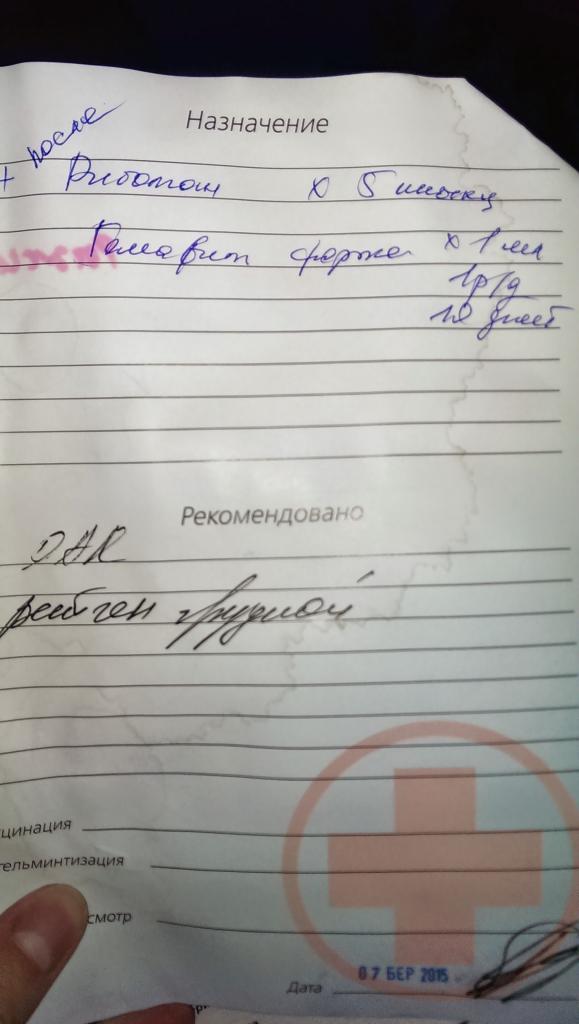 Назначение
+ после
Риботан х 5
Гамавит форте х 1 мл
1р/д
10 дней
Рекомендовано
ОАК
рентген грудной
цинация
гельминтизация
смотр
Дата 07 БЕР 2015